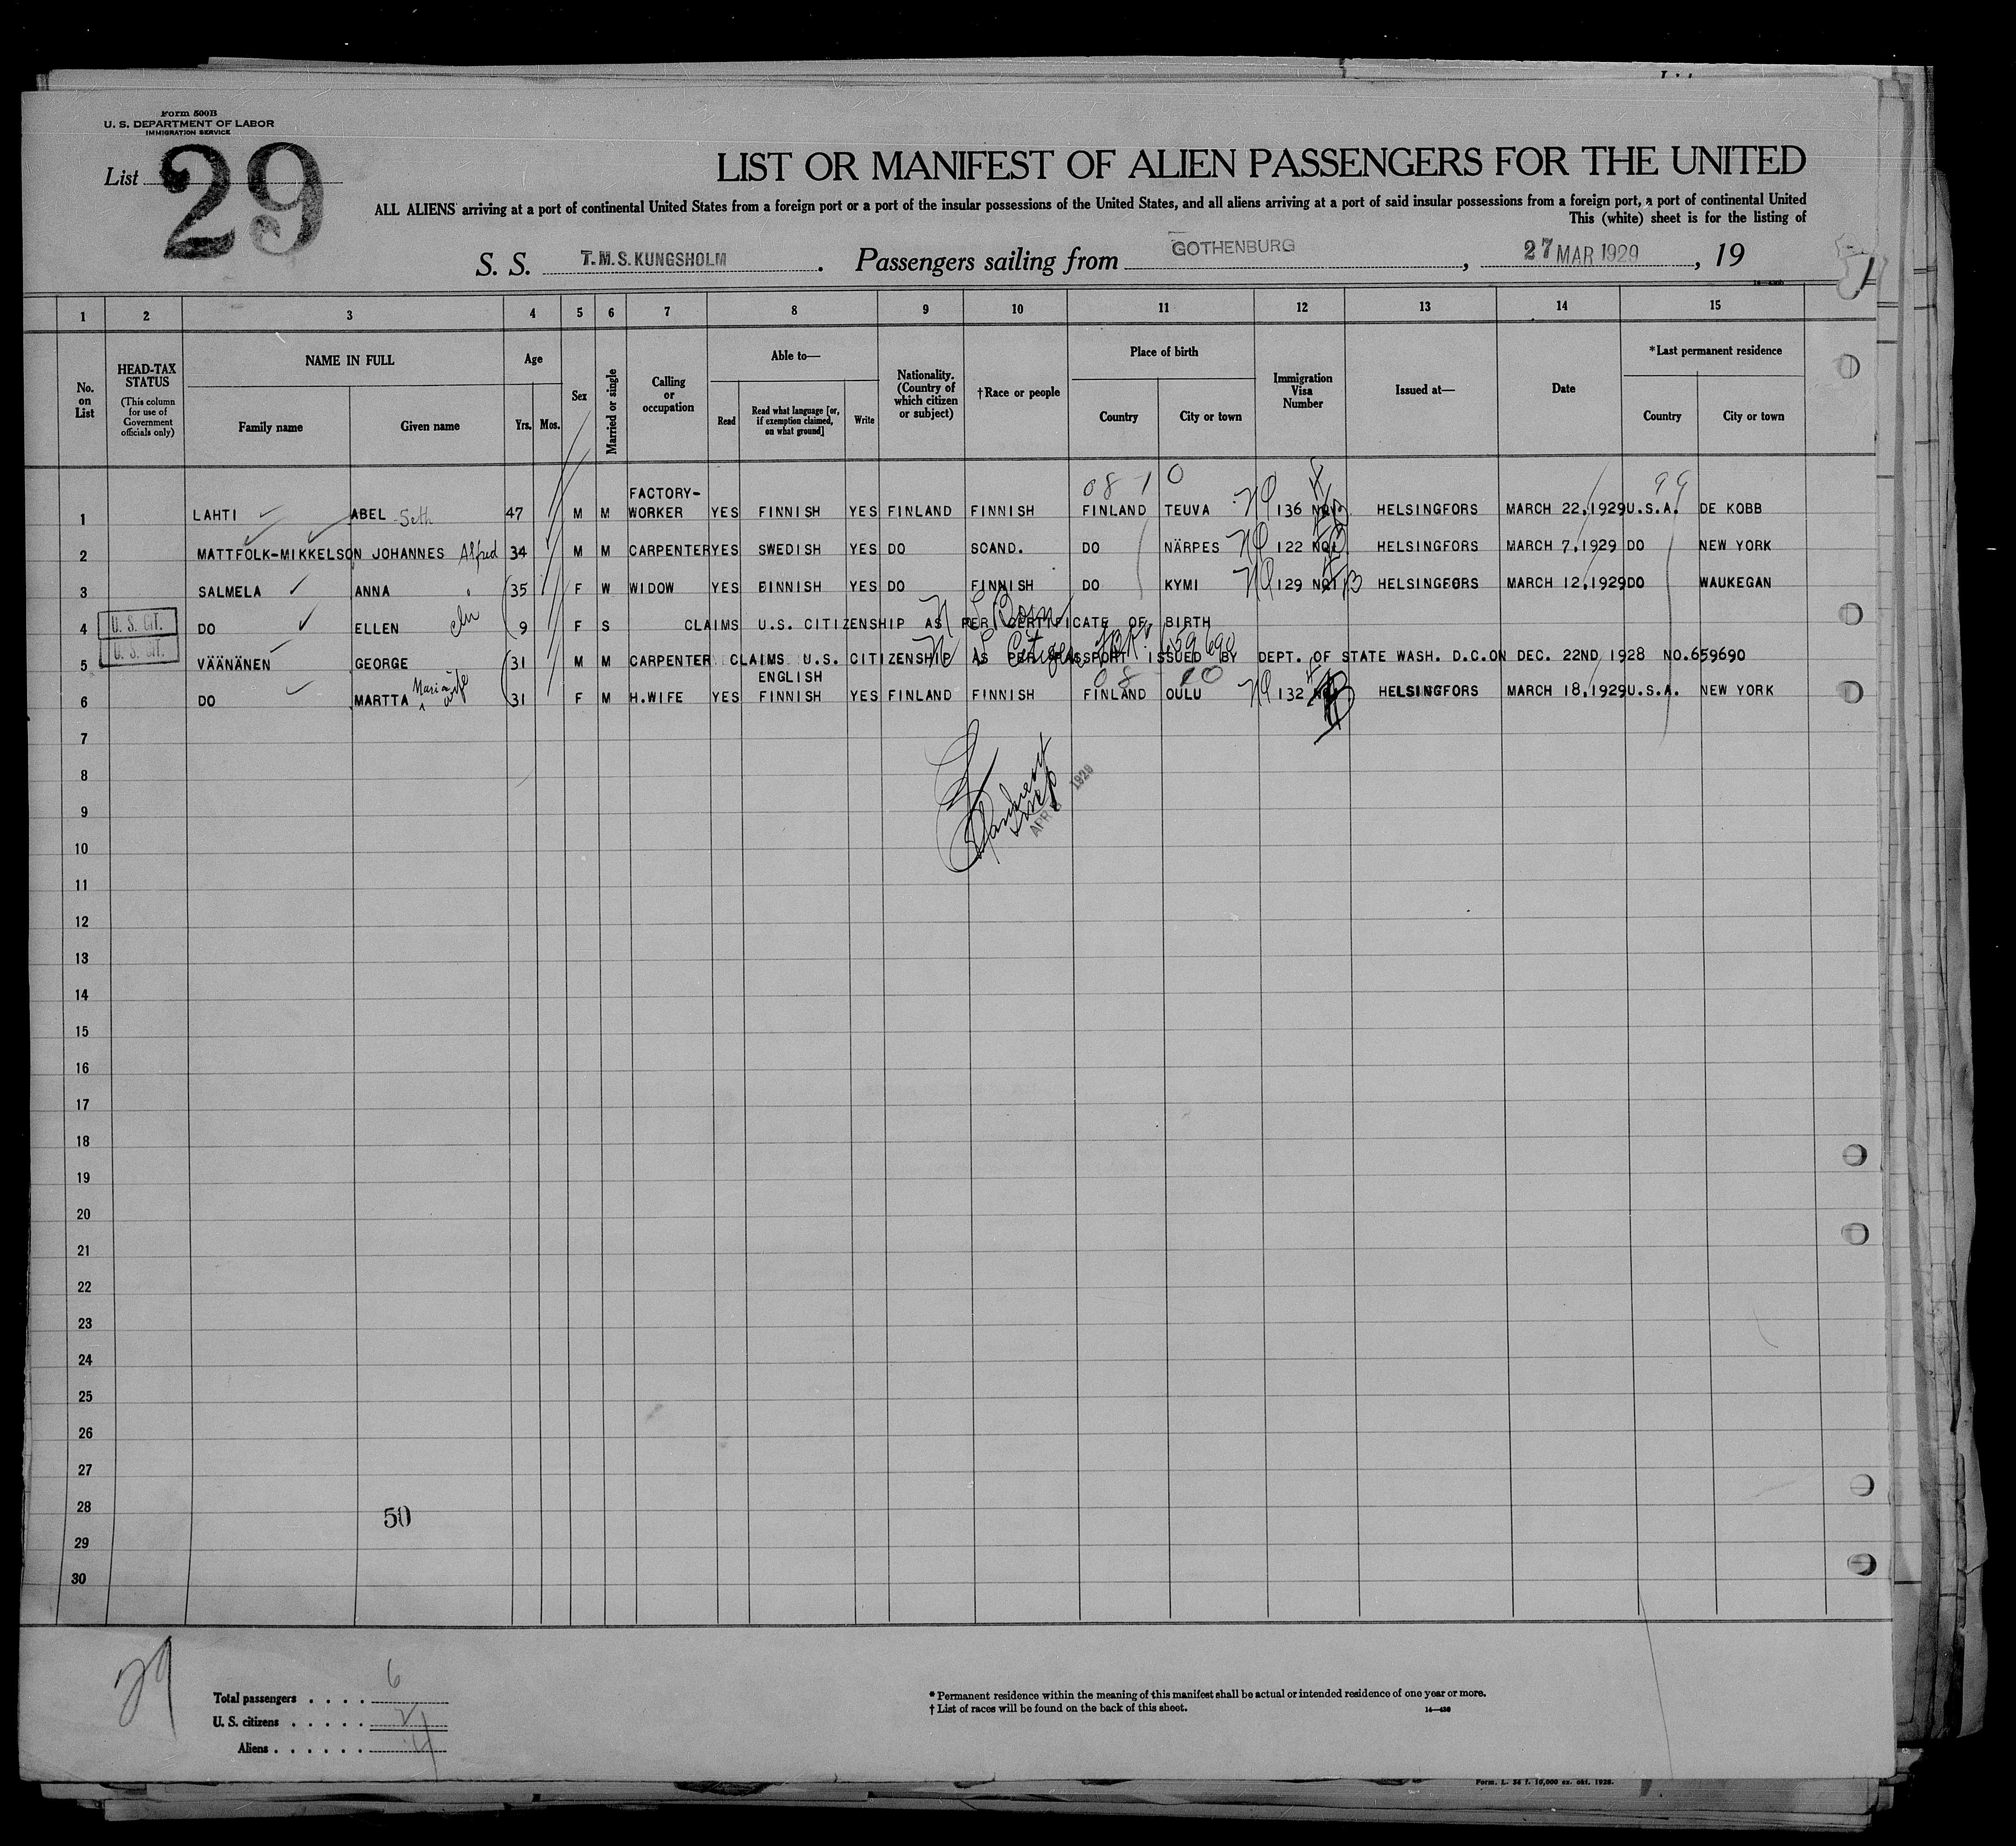 Form 500B
U. S. DEPARTMENT OF LABOR
IMMIGRATION SERVICE
List 29
LIST OR MANIFEST OF ALIEN PASSENGERS FOR THE UNITED
ALL ALIENS arriving at a port of continental United States from a foreign port or a port of the insular possessions of the United States, and all aliens arriving at a port of said insular possessions from a foreign port, a port of continental United
This (white) sheet is for the listing of
S. S. T.M.S. KUNGSHOLM. Passengers sailing from GOTHENBURG, 27 MAR 1929, 19
1 2 3 4 5 6 7 8 9 10 11 12 13 14 15
No. on List
HEAD-TAX STATUS (This column for use of Government officials only)
NAME IN FULL
Family name Given name
Age
Yrs. Mos.
Sex
Married or single
Calling or occupation
Able to—
Read
Read what language [or, if exemption claimed, on what ground]
Write
Nationality. (Country of which citizen or subject)
†Race or people
Place of birth
Country City or town
Immigration Visa Number
Issued at—
Date
*Last permanent residence
Country City or town
08-10 99
1 LAHTI ABEL Seth 47 M M FACTORY-WORKER YES FINNISH YES FINLAND FINNISH FINLAND TEUVA 136 HELSINGFORS MARCH 22,1929 U.S.A. DE KOBB
2 MATTFOLK-MIKKELSON JOHANNES Alfred 34 M M CARPENTER YES SWEDISH YES DO SCAND. DO NÄRPES 122 HELSINGFORS MARCH 7,1929 DO NEW YORK
3 SALMELA ANNA 35 F W WIDOW YES FINNISH YES DO FINNISH DO KYMI 129 HELSINGFORS MARCH 12,1929 DO WAUKEGAN
U. S. CIT.
4 DO ELLEN 9 F S CLAIMS U.S. CITIZENSHIP AS PER CERTIFICATE OF BIRTH
U S Born
U. S. CIT.
5 VÄÄNÄNEN GEORGE 31 M M CARPENTER CLAIMS U.S. CITIZENSHIP AS PER PASSPORT ISSUED BY DEPT. OF STATE WASH. D.C. ON DEC. 22ND 1928 NO.659690
U S Citizen 659690
08-10
6 DO MARTTA Maria wife 31 F M H.WIFE YES ENGLISH FINNISH YES FINLAND FINNISH FINLAND OULU 132 HELSINGFORS MARCH 18,1929 U.S.A. NEW YORK
7
APR 1929
8
9
10
11
12
13
14
15
16
17
18
19
20
21
22
23
24
25
26
27
28
50
29
30
29
Total passengers . . . . 6
U. S. citizens . . . . . 2
Aliens . . . . . . 4
* Permanent residence within the meaning of this manifest shall be actual or intended residence of one year or more.
† List of races will be found on the back of this sheet.
14—430
Form. L. 34 f. 10,000 ex. okt. 1928.